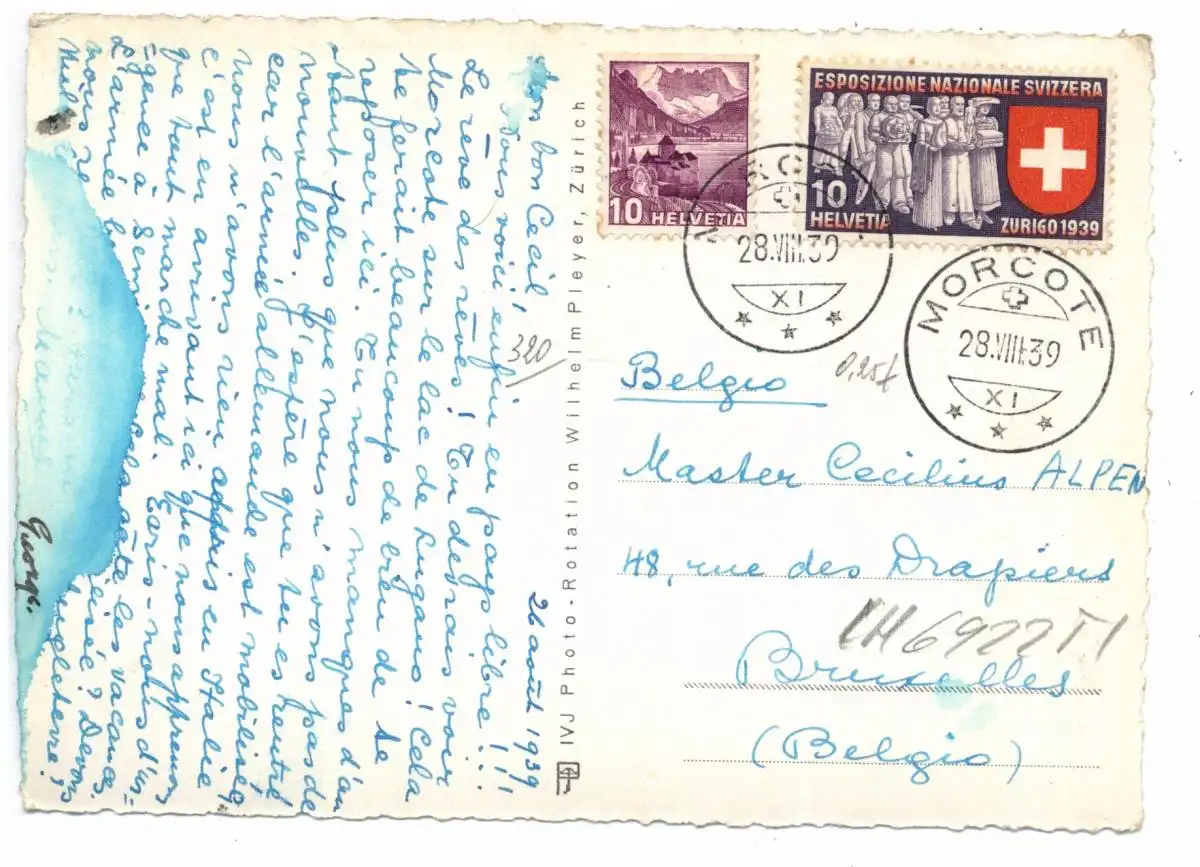 26 août 1939
Mon bon Cecil,
Nous voici enfin en pays libre!!!
Le rêve des rêves! Tu devrais voir
Morcote sur le lac de Lugano! Cela
te ferait beaucoup de bien de te
reposer ici. Tu nous manques d'au
tant plus que nous n'avons pas de
nouvelles. J'espère que tu es rentré
car l'armée allemande est mobilisée
nous n'avons rien appris en Italie
c'est en arrivant ici que nous apprenons
que tout marche mal. Ecris-nous d'ur=
=gence à gâte les vacances.
L'armée lisée? Devons
nous Angleterre?
George.
320
IVJ Photo-Rotation Wilhelm Pleyer, Zürich
10 HELVETIA
ESPOSIZIONE NAZIONALE SVIZZERA
10
HELVETIA
ZURIGO 1939
28.VIII.39
XI
MORCOTE
28.VIII.39
XI
0,25f
Belgio
Master Cecilius ALPEN
48, rue des Drapiers
CH6922TI
Bruxelles
(Belgio)